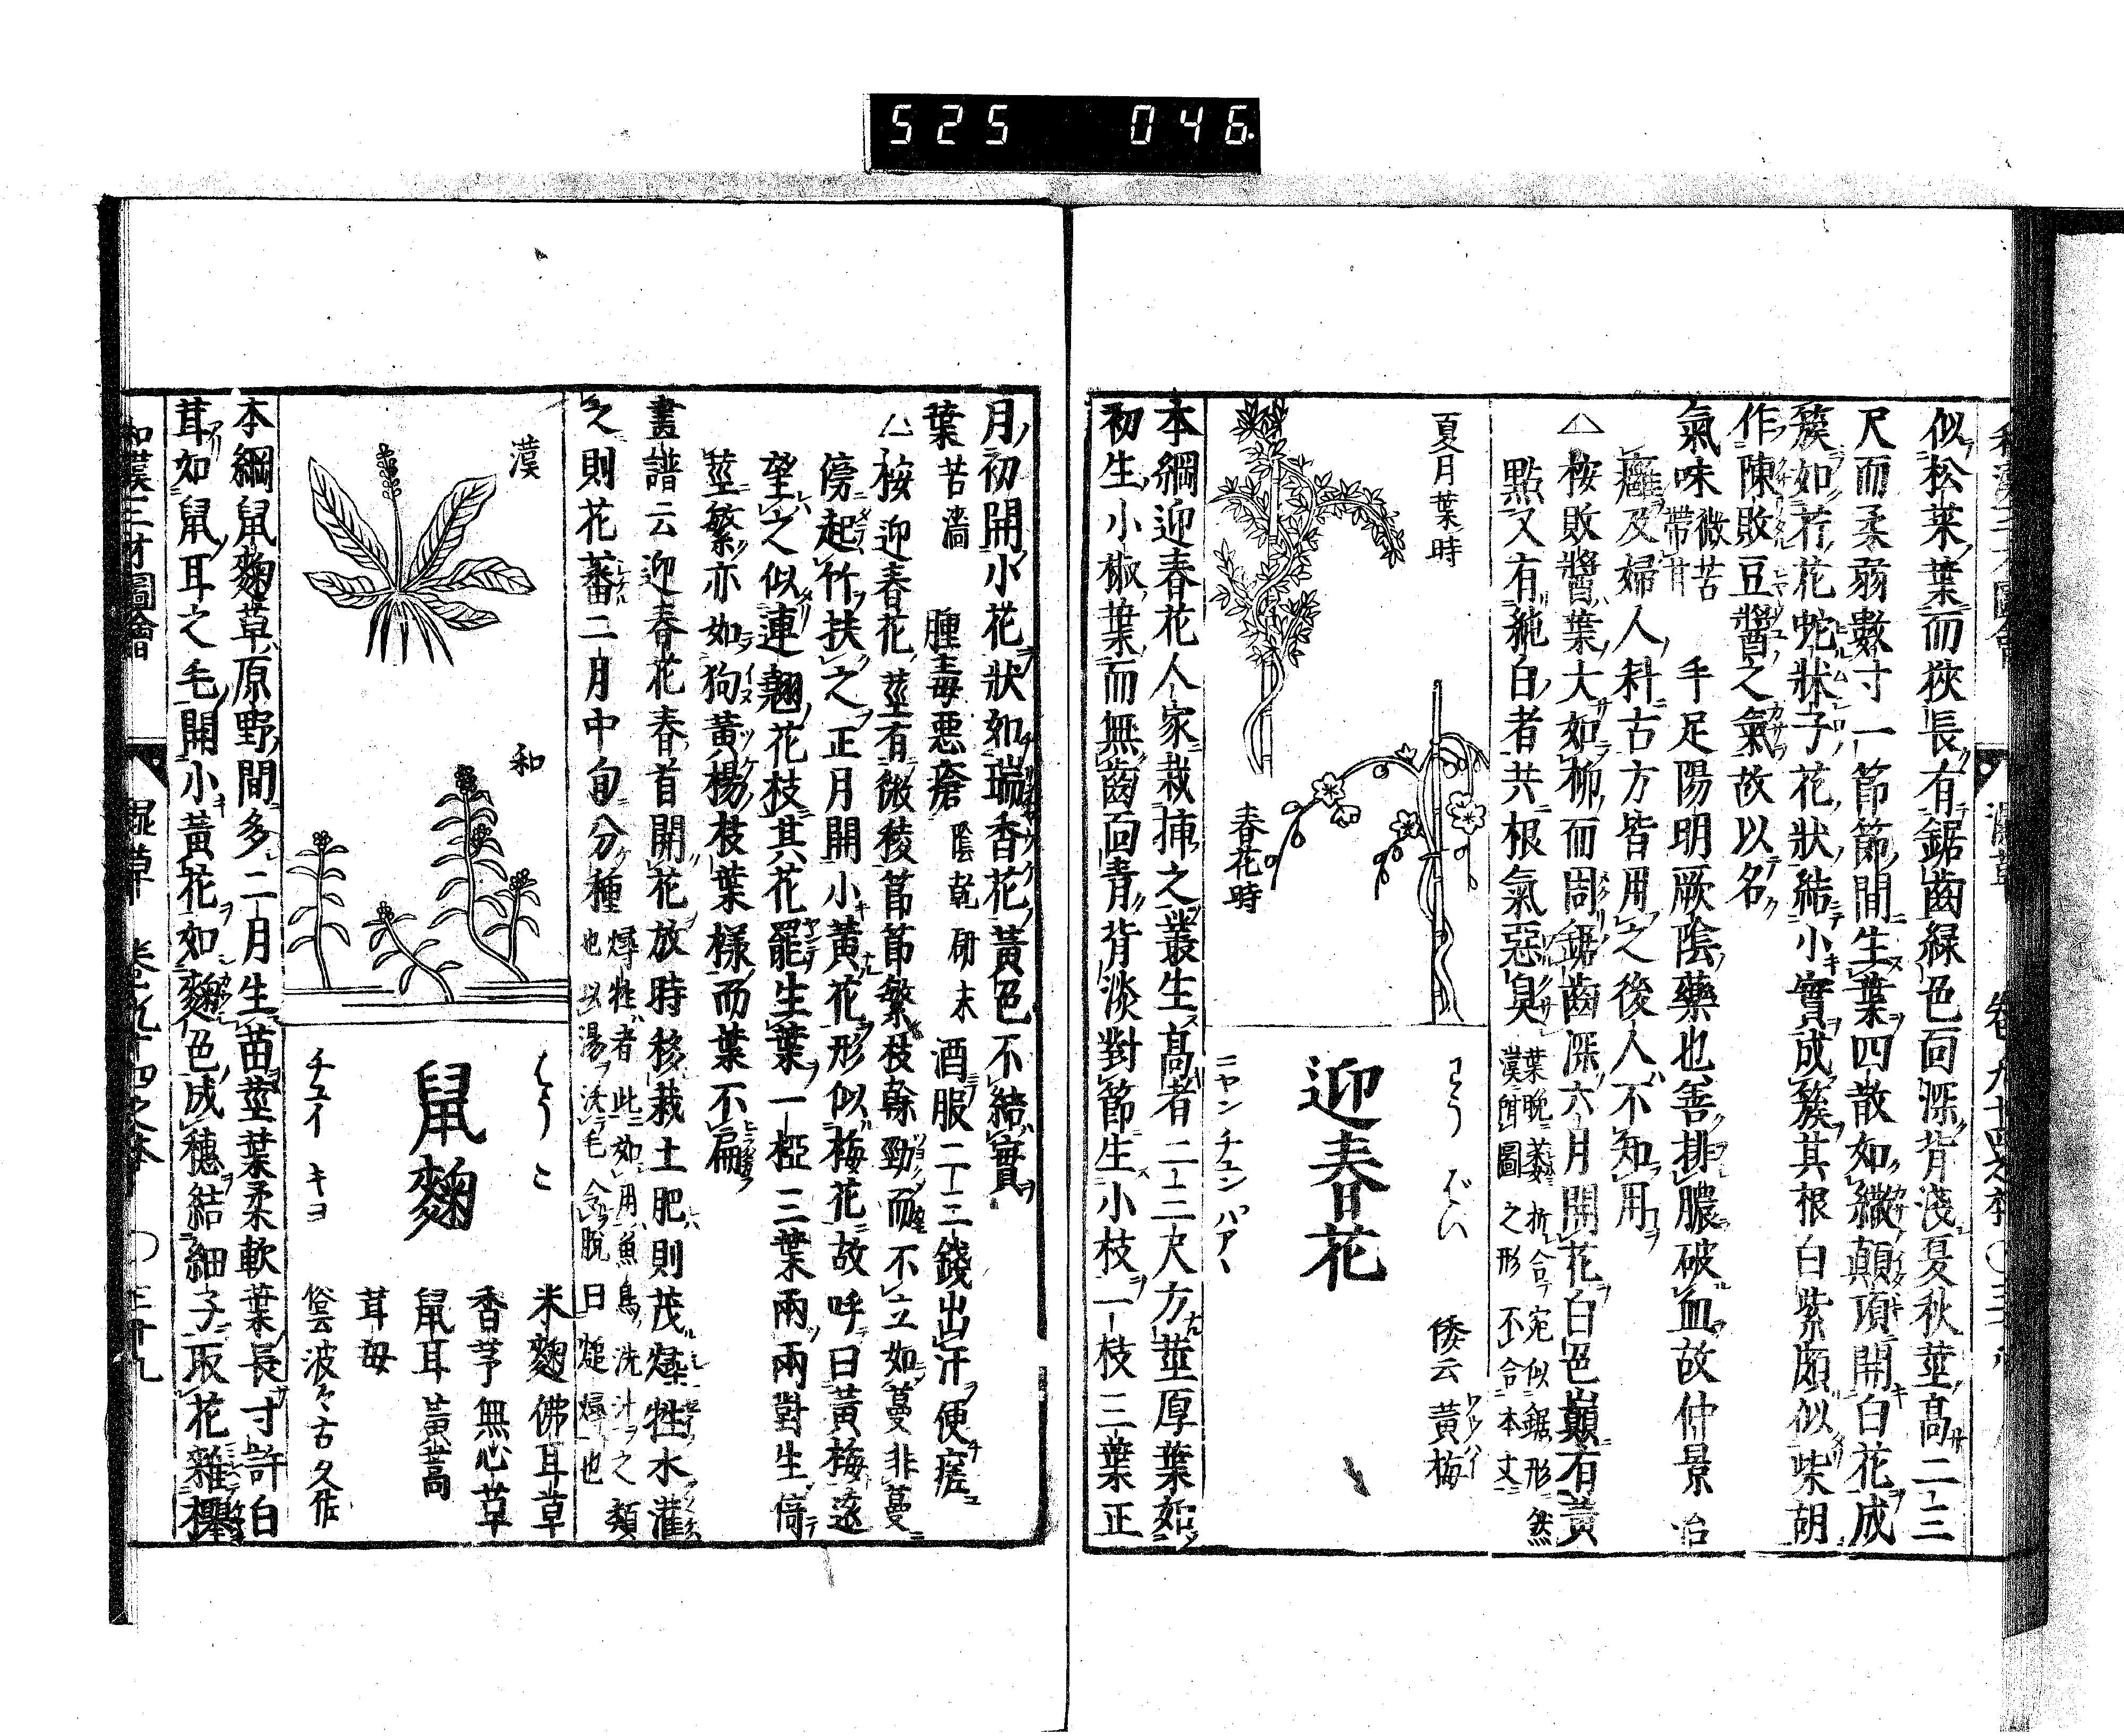 525 046.
似松菜葉而狹長有鋸齒緑色面深背淺夏秋莖髙二三
尺而柔弱數寸一節節間生葉四散如繖顛頂開白花成
簇如芹花蛇牀子花狀結小實成簇其根白紫頗似柴胡
作陳敗豆醬之氣故以名
氣味微苦帶甘 手足陽明厥陰藥也善排膿破血故仲景治
癰及婦人科古方皆用之後人不知用
△桉敗醬葉大如柳而周鋸齒深六月開花白色巓有黃
點又有純白者共根氣惡臭
葉晩萎折合宛似鋸形然
漢圖之形不合本文
夏月葉時
春花時
迎春花
わうばい
ニヤンチユンパアヽ
倭云黃梅
本綱迎春花人家栽揷之叢生髙者二三尺方莖厚葉如
初生小椒葉而無齒面青背淡對節生小枝一枝三葉正
月初開小花狀如瑞香花黃色不結實
葉苦濇 腫毒悪瘡陰乾研末酒服二三錢出汗便瘥
△桉迎春花莖有微稜節節繁枝幹勁而不立如蔓非蔓
傍起竹扶之正月開小黃花形似梅花故呼曰黃梅遠
望之似連翹花枝其花罷生葉一椏三葉兩兩對生倚
莖繁亦如狗黃楊枝葉様而葉不扁
畫譜云迎春花春首開花放時移栽土肥則茂燖牲水灌
之則花蕃二月中旬分種
燖牲者此如用魚鳥洗汁之類
也以湯沃毛令脫曰𤏡燖也
漢
和
鼠麴
はうこ
チユイ キヨ
米麴 佛耳草
香茅 無心草
鼠耳 黃蒿
茸母
俗云波々古久佐
本綱鼠麴草原野間多二月生苗莖葉柔軟葉長寸許白
茸如鼠耳之毛開小黃花如麴色成穗結細子取花雜櫸
和漢三才圖會 濕草 卷九十四之本 ○三十九